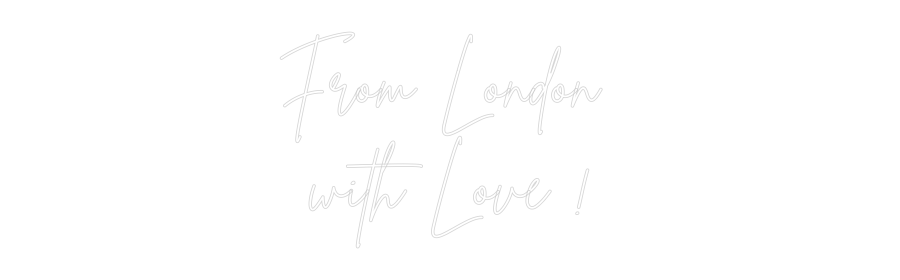 From London
with Love !